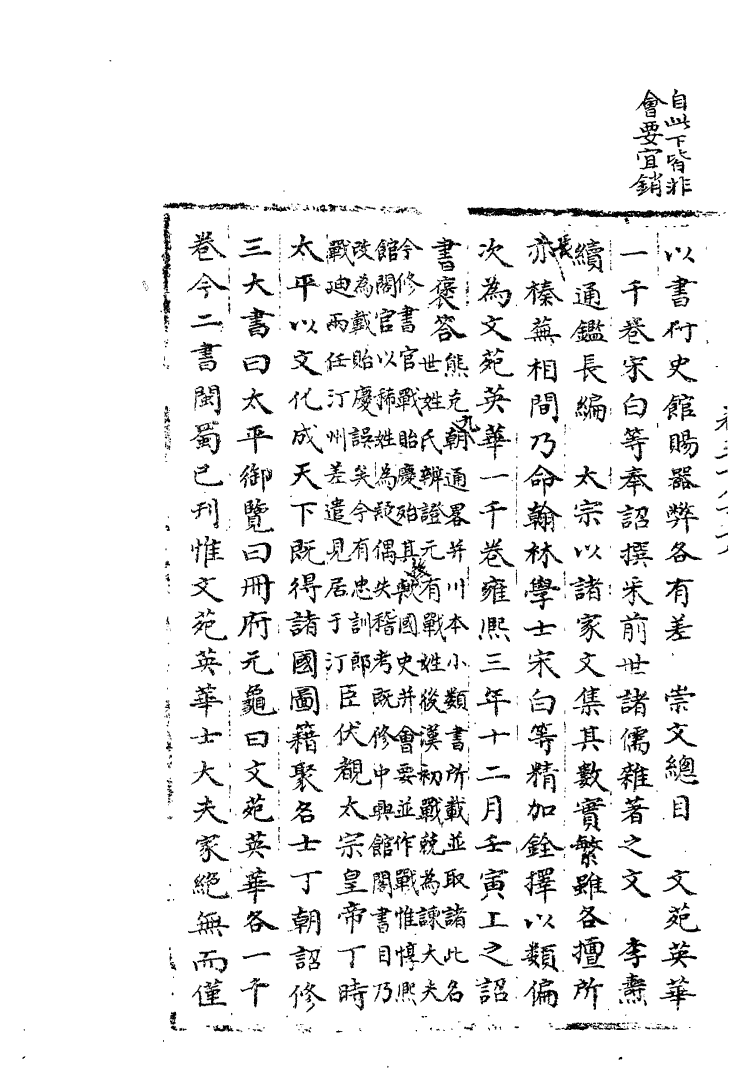 自此下皆非
會要宜銷
以書付史館賜器弊各有差　崇文總目　文苑英華
一千卷宋白等奉詔撰采前世諸儒雜著之文　李燾
續通鑑長編　太宗以諸家文集其數實繁雖各擅所
長亦榛蕪相間乃命翰林學士宋白等精加銓擇以類偏
次為文苑英華一千卷雍熙三年十二月壬寅上之詔
書褒答熊克九朝通畧并川本小類書所載並取諸此名
世姓氏辨證元有戰姓後漢初戰兢為諫大夫
今修書官戰貽慶殆其後歟國史并會要並作戰惟惇熙
館閣官以稀姓為疑偶失稽考既修中興館閣書目乃
改為載貽慶誤矣今有忠訓郎
戰迪兩任汀州差遣見居于汀
臣伏覩太宗皇帝丁時
太平以文化成天下既得諸國圖籍聚名士丁朝詔修
三大書曰太平御覽曰冊府元龜曰文苑英華各一千
卷今二書閩蜀已刊惟文苑英華士大夫家絕無而僅